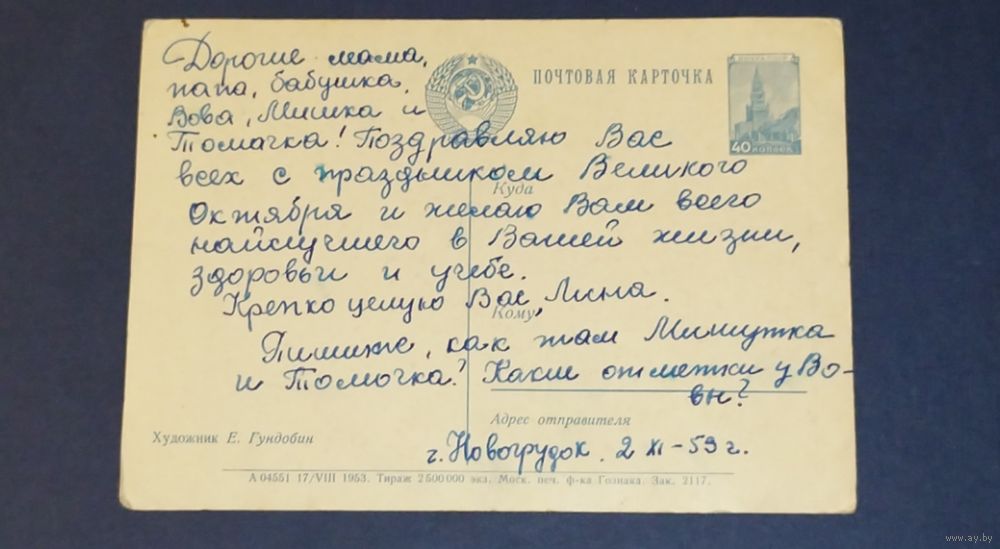 Дорогие мама,
папа, бабушка,
Вова, Мишка и
Томочка! Поздравляю Вас
всех с праздником Великого
Октября и желаю Вам всего
найлучшего в Вашей жизни,
здоровьи и учебе.
Крепко целую Вас, Лина.
Пишите, как там Мишутка
и Томочка? Какие отметки у Во-
вы?
г. Новогрудок. 2 XI - 53 г.
ПОЧТОВАЯ КАРТОЧКА
ПОЧТА СССР
40 КОПЕЕК
Куда
Кому
Адрес отправителя
Художник Е. Гундобин
А 04551 17/VIII 1953. Тираж 2 500 000 экз. Моск. печ. ф-ка Гознака. Зак. 2117.
www.ay.by